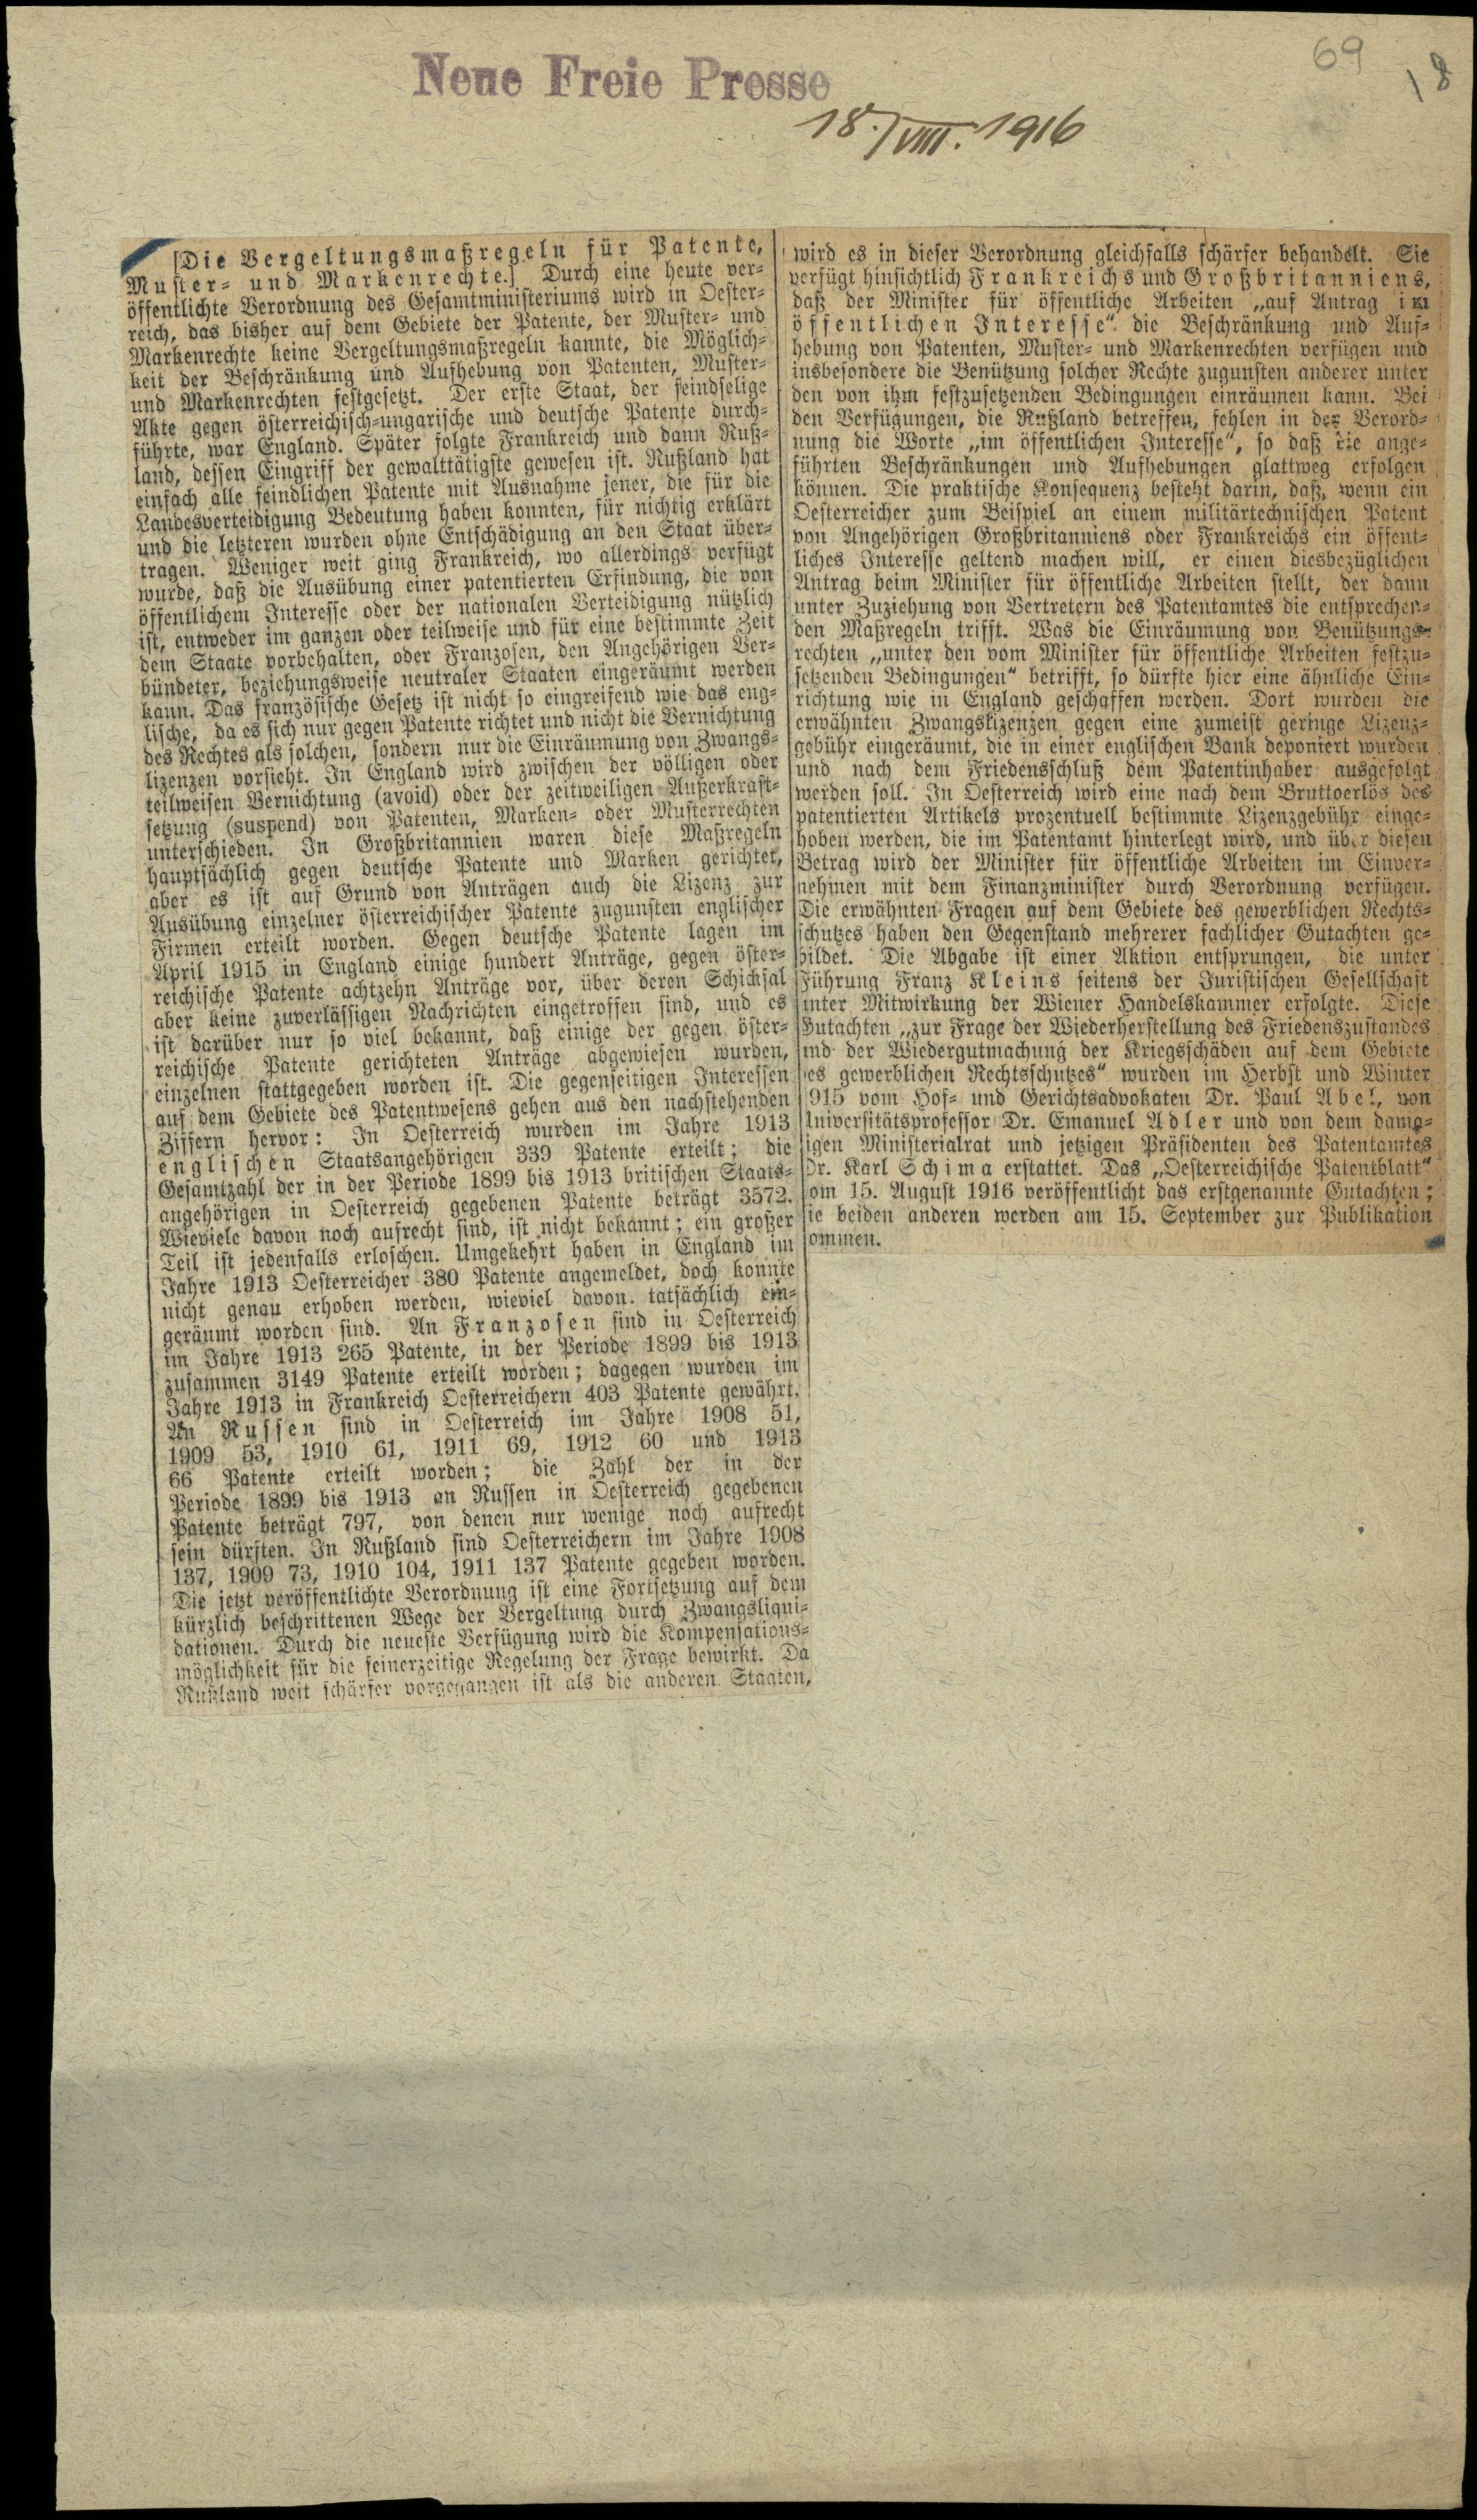 Neue Freie Presse
69
18
18./VIII. 1916
[Die Vergeltungsmaßregeln für Patente,
Muster- und Markenrechte.] Durch eine heute ver-
öffentlichte Verordnung des Gesamtministeriums wird in Oester-
reich, das bisher auf dem Gebiete der Patente, der Muster- und
Markenrechte keine Vergeltungsmaßregeln kannte, die Möglich-
keit der Beschränkung und Aufhebung von Patenten, Muster-
und Markenrechten festgesetzt. Der erste Staat, der feindselige
Akte gegen österreichisch-ungarische und deutsche Patente durch-
führte, war England. Später folgte Frankreich und dann Ruß-
land, dessen Eingriff der gewalttätigste gewesen ist. Rußland hat
einfach alle feindlichen Patente mit Ausnahme jener, die für die
Landesverteidigung Bedeutung haben konnten, für nichtig erklärt
und die letzteren wurden ohne Entschädigung an den Staat über-
tragen. Weniger weit ging Frankreich, wo allerdings verfügt
wurde, daß die Ausübung einer patentierten Erfindung, die von
öffentlichem Interesse oder der nationalen Verteidigung nützlich
ist, entweder im ganzen oder teilweise und für eine bestimmte Zeit
dem Staate vorbehalten, oder Franzosen, den Angehörigen Ver-
bündeter, beziehungsweise neutraler Staaten eingeräumt werden
kann. Das französische Gesetz ist nicht so eingreifend wie das eng-
lische, da es sich nur gegen Patente richtet und nicht die Vernichtung
des Rechtes als solchen, sondern nur die Einräumung von Zwangs-
lizenzen vorsieht. In England wird zwischen der völligen oder
teilweisen Vernichtung (avoid) oder der zeitweiligen Außerkraft-
setzung (suspend) von Patenten, Marken- oder Musterrechten
unterschieden. In Großbritannien waren diese Maßregeln
hauptsächlich gegen deutsche Patente und Marken gerichtet,
aber es ist auf Grund von Anträgen auch die Lizenz zur
Ausübung einzelner österreichischer Patente zugunsten englischer
Firmen erteilt worden. Gegen deutsche Patente lagen im
April 1915 in England einige hundert Anträge, gegen öster-
reichische Patente achtzehn Anträge vor, über deren Schicksal
aber keine zuverlässigen Nachrichten eingetroffen sind, und es
ist darüber nur so viel bekannt, daß einige der gegen öster-
reichische Patente gerichteten Anträge abgewiesen wurden,
einzelnen stattgegeben worden ist. Die gegenseitigen Interessen
auf dem Gebiete des Patentwesens gehen aus den nachstehenden
Ziffern hervor: In Oesterreich wurden im Jahre 1913
englischen Staatsangehörigen 339 Patente erteilt; die
Gesamtzahl der in der Periode 1899 bis 1913 britischen Staats-
angehörigen in Oesterreich gegebenen Patente beträgt 3572.
Wieviele davon noch aufrecht sind, ist nicht bekannt; ein großer
Teil ist jedenfalls erloschen. Umgekehrt haben in England im
Jahre 1913 Oesterreicher 380 Patente angemeldet, doch konnte
nicht genau erhoben werden, wieviel davon tatsächlich ein-
geräumt worden sind. An Franzosen sind in Oesterreich
im Jahre 1913 265 Patente, in der Periode 1899 bis 1913
zusammen 3149 Patente erteilt worden; dagegen wurden im
Jahre 1913 in Frankreich Oesterreichern 403 Patente gewährt.
An Russen sind in Oesterreich im Jahre 1908 51,
1909 53, 1910 61, 1911 69, 1912 60 und 1913
66 Patente erteilt worden; die Zahl der in der
Periode 1899 bis 1913 an Russen in Oesterreich gegebenen
Patente beträgt 797, von denen nur wenige noch aufrecht
sein dürften. In Rußland sind Oesterreichern im Jahre 1908
137, 1909 73, 1910 104, 1911 137 Patente gegeben worden.
Die jetzt veröffentlichte Verordnung ist eine Fortsetzung auf dem
kürzlich beschrittenen Wege der Vergeltung durch Zwangsliqui-
dationen. Durch die neueste Verfügung wird die Kompensations-
möglichkeit für die seinerzeitige Regelung der Frage bewirkt. Da
Rußland weit schärfer vorgegangen ist als die anderen Staaten,
wird es in dieser Verordnung gleichfalls schärfer behandelt. Sie
verfügt hinsichtlich Frankreichs und Großbritanniens,
daß der Minister für öffentliche Arbeiten „auf Antrag im
öffentlichen Interesse“ die Beschränkung und Auf-
hebung von Patenten, Muster- und Markenrechten verfügen und
insbesondere die Benützung solcher Rechte zugunsten anderer unter
den von ihm festzusetzenden Bedingungen einräumen kann. Bei
den Verfügungen, die Rußland betreffen, fehlen in der Verord-
nung die Worte „im öffentlichen Interesse“, so daß die ange-
führten Beschränkungen und Aufhebungen glattweg erfolgen
können. Die praktische Konsequenz besteht darin, daß, wenn ein
Oesterreicher zum Beispiel an einem militärtechnischen Patent
von Angehörigen Großbritanniens oder Frankreichs ein öffent-
liches Interesse geltend machen will, er einen diesbezüglichen
Antrag beim Minister für öffentliche Arbeiten stellt, der dann
unter Zuziehung von Vertretern des Patentamtes die entsprechen-
den Maßregeln trifft. Was die Einräumung von Benützungs-
rechten „unter den vom Minister für öffentliche Arbeiten festzu-
setzenden Bedingungen“ betrifft, so dürfte hier eine ähnliche Ein-
richtung wie in England geschaffen werden. Dort wurden die
erwähnten Zwangslizenzen gegen eine zumeist geringe Lizenz-
gebühr eingeräumt, die in einer englischen Bank deponiert wurden
und nach dem Friedensschluß dem Patentinhaber ausgefolgt
werden soll. In Oesterreich wird eine nach dem Bruttoerlös des
patentierten Artikels prozentuell bestimmte Lizenzgebühr einge-
hoben werden, die im Patentamt hinterlegt wird, und über diesen
Betrag wird der Minister für öffentliche Arbeiten im Einver-
nehmen mit dem Finanzminister durch Verordnung verfügen.
Die erwähnten Fragen auf dem Gebiete des gewerblichen Rechts-
schutzes haben den Gegenstand mehrerer fachlicher Gutachten ge-
bildet. Die Abgabe ist einer Aktion entsprungen, die unter
Führung Franz Kleins seitens der Juristischen Gesellschaft
unter Mitwirkung der Wiener Handelskammer erfolgte. Diese
Gutachten „zur Frage der Wiederherstellung des Friedenszustandes
und der Wiedergutmachung der Kriegsschäden auf dem Gebiete
es gewerblichen Rechtsschutzes“ wurden im Herbst und Winter
915 vom Hof- und Gerichtsadvokaten Dr. Paul Abel, von
Universitätsprofessor Dr. Emanuel Adler und von dem dama-
igen Ministerialrat und jetzigen Präsidenten des Patentamtes
Dr. Karl Schima erstattet. Das „Oesterreichische Patentblatt“
om 15. August 1916 veröffentlicht das erstgenannte Gutachten;
ie beiden anderen werden am 15. September zur Publikation
ommen.